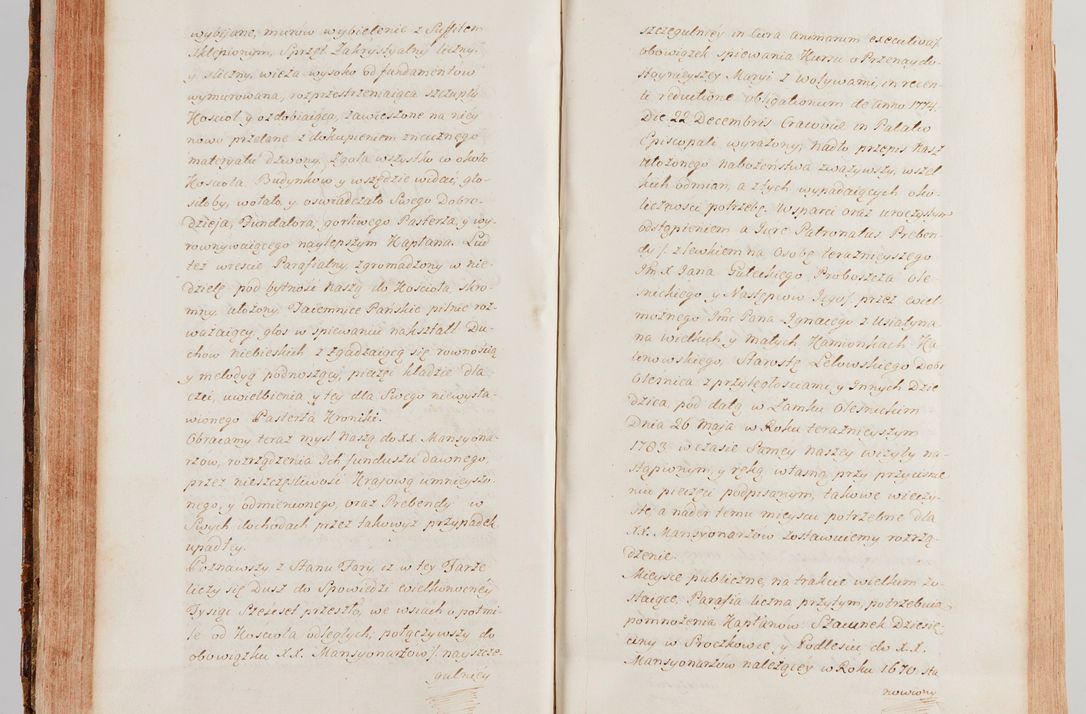 wybijane, murów wybielenie z Suffitem
sklepionym, Sprzęt Zakrystyalny liczny
y śliczny, wieża wysoko od fundamentow
wymurowana, rozprzestrzeniaiąca szczupło
Kościoł y ozdobiaiąca, zawieszone na niey
nowo przelane z dokupieniem znacznego
materyału dzwony. Zgoła wszystko co około
Kościoła Budynkow y wszędzie widać, gło-
siłoby, wołało y oświadczało Swego Dobro-
dzieja, Fundatora, gorliwego Pasterza, y wy-
rownywaiącego naylepszym Kapłana. Lud
też wreście Parafialny, zgromadzony w nie-
dzielę pod bytność Naszą do Kościoła, skro-
mny, ułożony, Taiemnice Pańskie pilnie roz-
ważaiący, głos w spiewaniu nakształt Du-
chow niebieskich z zgadzaiącą się rownością
y melodyą podnoszący, pieczęć kładzie dla
czci, uwielbienia, y tey dla Swego niewysła-
wionego Pasterza Kroniki.
Obracamy teraz myśl Naszą do XX. Mansyona-
rzów, rozrządzenia Ich funduszu dawnego,
przez nieszczęśliwość Kraiową umnieyszo-
nego, y odmienionego, oraz Prebendy w
Swych dochodach przez takowyż przypadek
upadłey.
Poznawszy z Stanu Fary, iż w tey Farze
liczy się Dusz do Spowiedzi wielkanocney
Tysiąc Sześćset przeszło, we wsiach o połmi-
le od Kościoła odległych, połączywszy do
obowiązku XX. Mansyonarzow /: nayszcze-
gulniey
szczegulniey in Cura animarum executiva :/
obowiązek spiewania Kursu o Przenaydo-
stoynieyszey Maryi z Wotywami, in recen-
ti reductione obligationum de Anno 1774.
Die 22 Decembris Cracoviæ in Palatio
Episcopali wyrażony, nadto przepis Nasz
ułożonego nabożeństwa zważywszy, wszel
kich odmian, a złych wypadaiących oko-
liczności potrzebę. Wsparci oraz uroczystym
odstąpieniem a Jure Patronatus Preben-
dy /: z lewkiem na Osobę teraznieyszego
Jm X Jana Gałeckiego Proboszcza Ole-
śnickiego, y Następcow Jego :/ przez Wiel
możnego Jmc Pana Ignacego z Usiatyna
na Wielkich y małych Kamionkach Ka
linowskiego, Starostę Lelowskiego Dobr
Olesnica z przyległościami y Innych Dzie
dzica, pod datą w Zamku Olesnickim
Dnia 26 Maja w Roku teraznieyszym
1783 w czasie Samey naszey wizyty na-
stąpionym, y ręką własną przy przyciśnie
niu pieczęci podpisanym, takowe wieczy-
ste a nader temu mieyscu potrzebne dla
XX. Mansyonarzow zostawuiemy rozrzą-
dzenie.
Mieysce publiczne, na trakcie wielkim zo-
staiące, Parafia liczna przytym, potrzebuią
pomnożenia Kapłanow. Szacunek Dziesię-
ciny w Proczkowce, y Podlesiu do XX.
Mansyonarzow należącey w Roku 1670 sta
nowiony